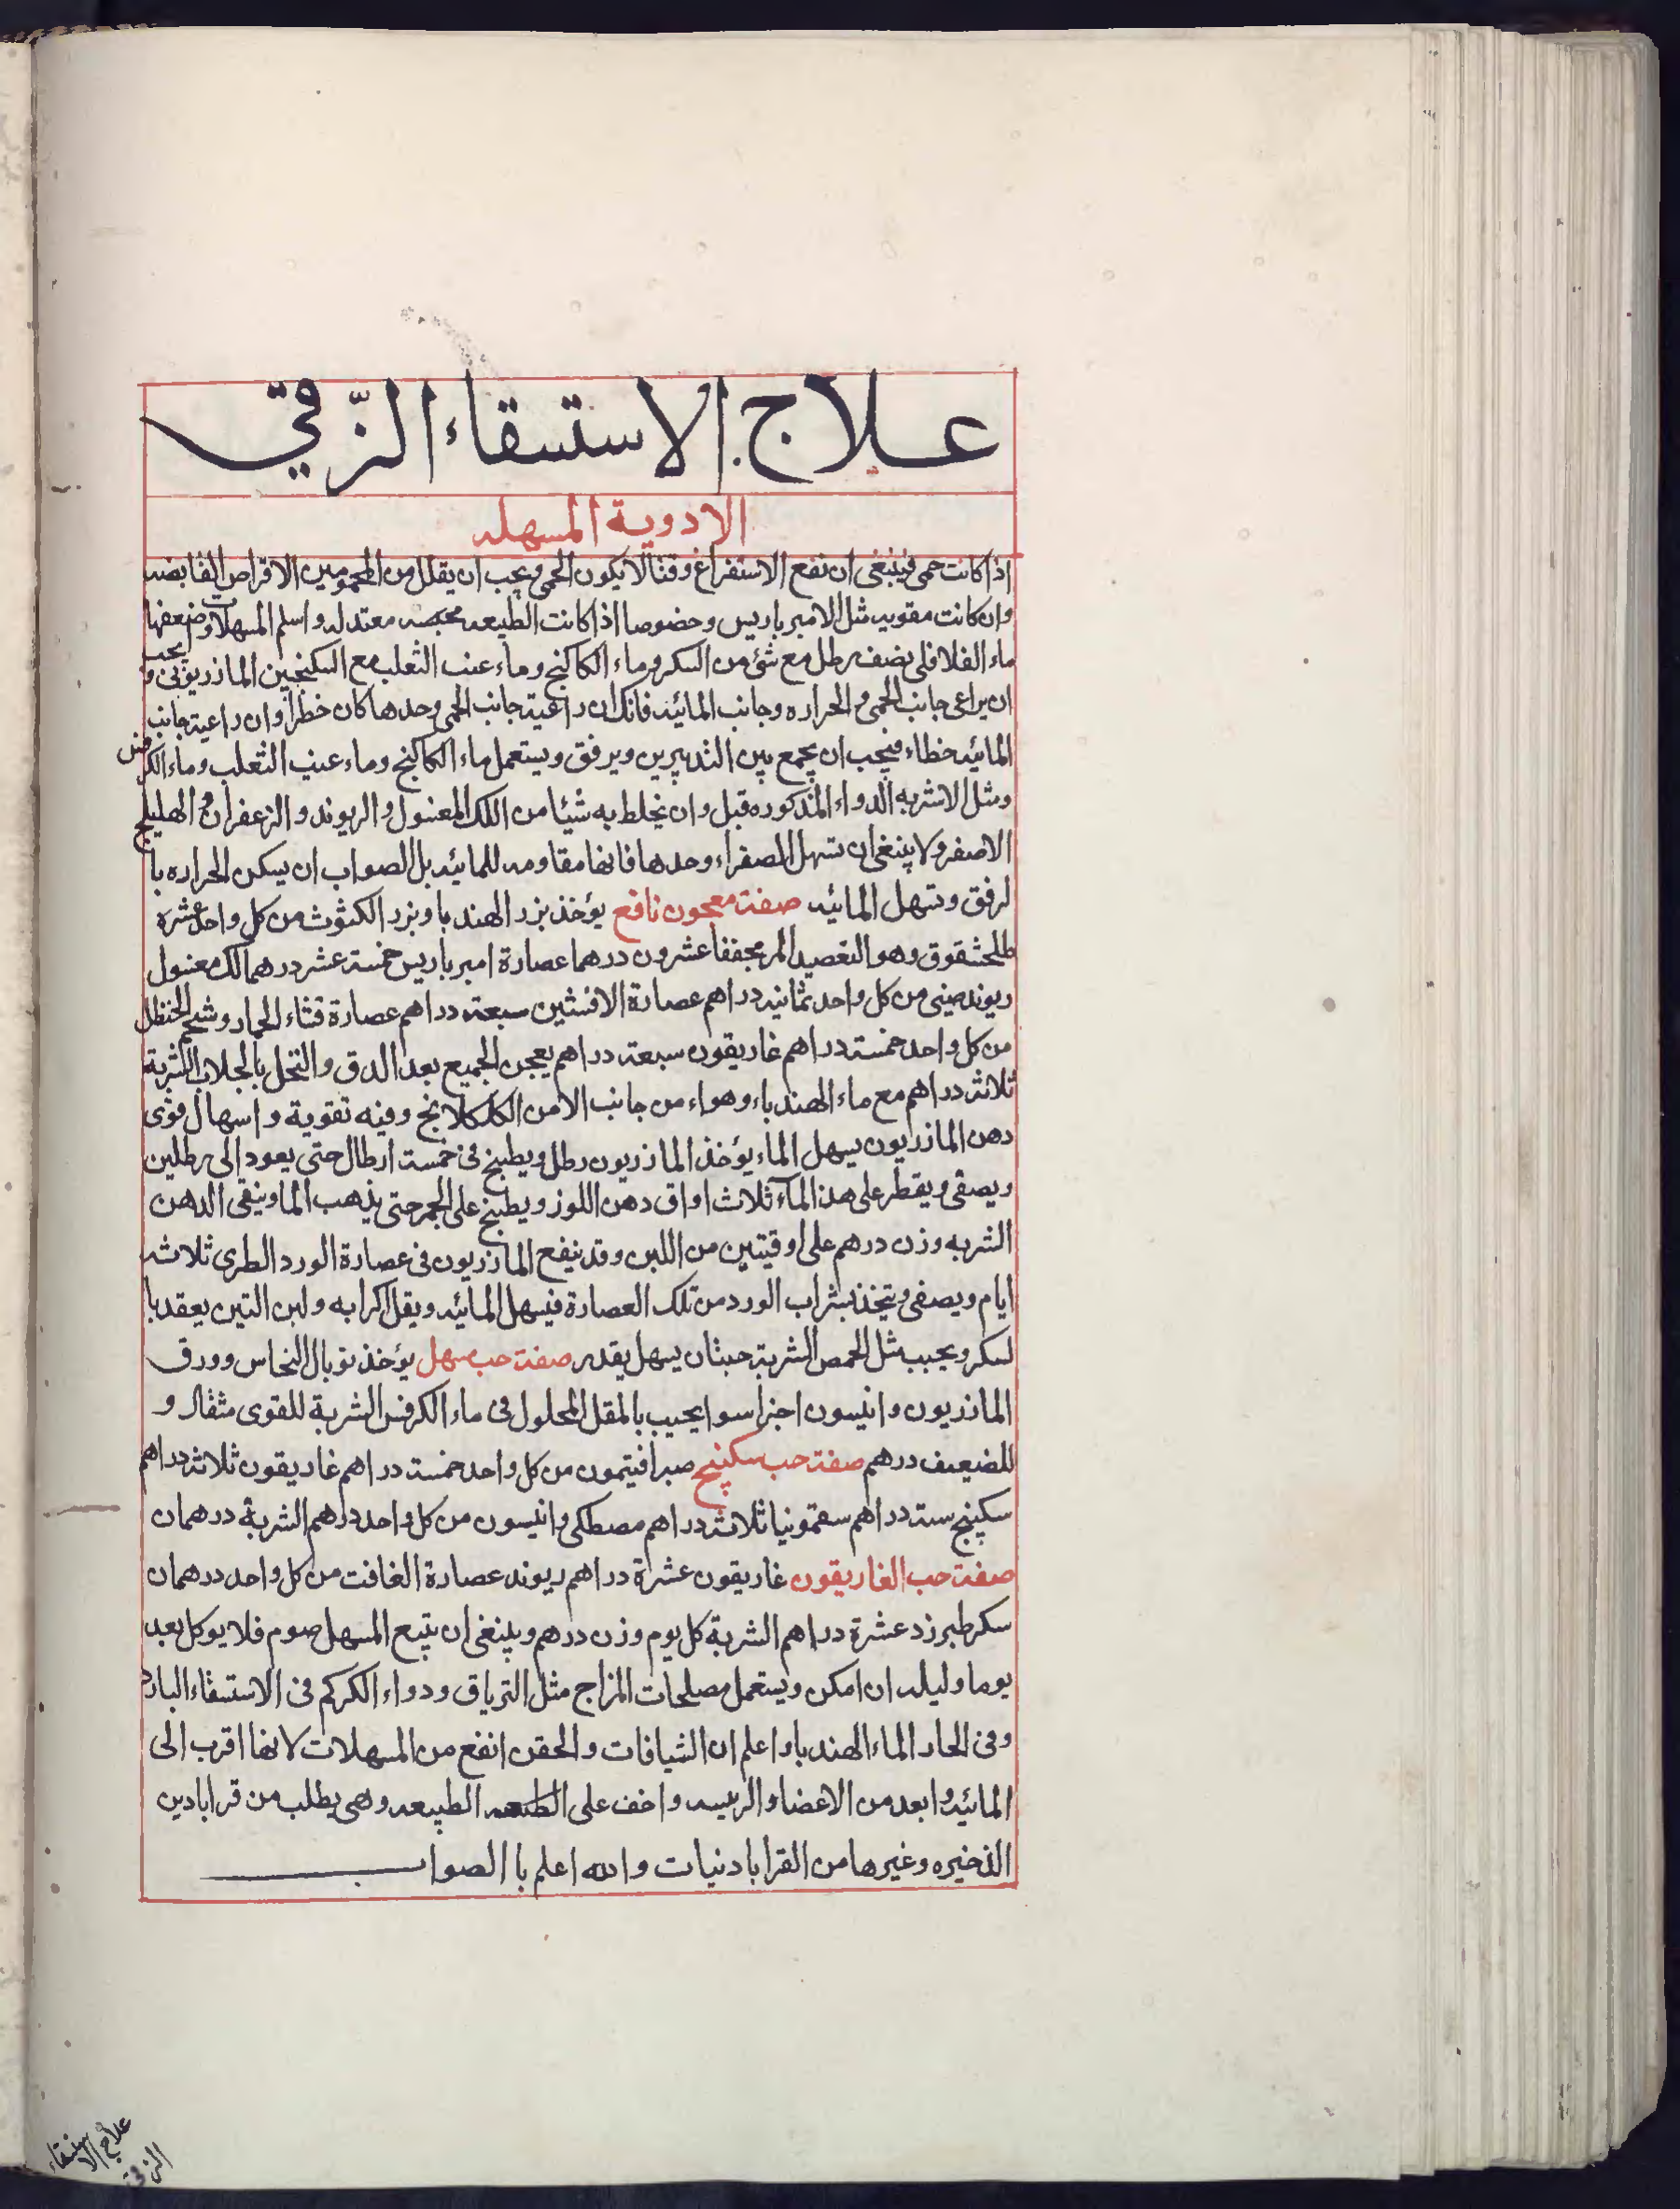 علاج الاستسقاء الزّقي
الادوية المسهله
اذا كانت حمى فينبغى ان تقع الاستفراغ وقتا لا يكون الحمى ويجب ان يقلل من المحمومين الاقراص القابضه
وان كانت مقويه مثل الامبرباريس وخصوصا اذا كانت الطبيعه معتدله واسلم المسهلات واضعفها
ماء القلاقلى نصف رطل مع شئ من السكر وماء الكاكنج وماء عنب الثعلب مع السكنجبين المازريونى ويجب
ان يراعى جانب الحمى والحراره وجانب المائيه فانك ان راعيت جانب الحمى وحدها كان خطرا وان راعيت جانب
المائيه خطاء فيجب ان يجمع بين التدبيرين ويرفق ويستعمل ماء الكاكنج وماء عنب الثعلب وماء الكرفس
ومثل الاشربه الدواء المذكوره قبل وان يخلط به شيئا من اللك المغسول والريوند والزعفران والهليلج
الاصفر ولا ينبغى ان تسهل الصفراء وحدها فانها مقاومه للمائيه بل الصواب ان يسكن الحراره با
لرفق وتسهل المائيه صفت معجون نافع يؤخذ بزر الهندبا وبزر الكشوث من كل واحد عشرة
طلحشقوق وهو التعصيد المر مجففا عشرون درهما عصارة امبرباريس خمسة عشر درهما لك مغسول
ريوند صينى من كل واحد ثمانيه دراهم عصارة الافسنتين سبعة دراهم عصارة قثاء الحمار وشحم الحنظل
من كل واحد خمسة دراهم غاريقون سبعة دراهم يعجن الجميع بعد الدق والنخل بالجلاب الشربة
ثلاثه دراهم مع ماء الهندباء وهواء من جانب الامن الكلكلانج وفيه تقوية واسهال قوى
دهن المازريون يسهل الماء يؤخذ المازريون رطل ويطبخ فى خمسة ارطال حتى يعود الى رطلين
ويصفى ويقطر على هذا الماء ثلاث اواق دهن اللوز ويطبخ على الجمر حتى يذهب الما ويبقى الدهن
الشربه وزن درهم على اوقيتين من اللبن وقد ينفع المازريون فى عصارة الورد الطرى ثلاثه
ايام ويصفى ويتخذ بشراب الورد من تلك العصارة فيسهل المائيه ويقل اكرابه ولبن التين يعقد با
لسكر ويجبب مثل الحمص الشربة حبتان يسهل بقدر صفت حب مسهل يؤخذ توبال النحاس وورق
المازريون وانيسون اجزا سوا يجبب بالمقل المحلول فى ماء الكرفس الشربة للقوى مثقال و
للضعيف درهم صفت حب سكبنج صبر افتيمون من كل واحد خمسة دراهم غاريقون ثلاثة دراهم
سكبنج ستة دراهم سقمونيا ثلاثة دراهم مصطكى وانيسون من كل واحد درهم الشربة درهمان
صفت حب الغاريقون غاريقون عشرة دراهم ريوند عصارة الغافت من كل واحد درهمان
سكر طبرزد عشرة دراهم الشربة كل يوم وزن درهم وينبغى ان يتبع المسهل صوم فلا يوكل بعد
يوما وليله ان امكن ويستعمل مصلحات المزاج مثل الترياق ودواء الكركم فى الاستسقاء البارد
وفى الحار الماء الهندبا واعلم ان الشيافات والحقن انفع من المسهلات لانها اقرب الى
المائيه وابعد من الاعضاء الرئيسه واخف على الطبيعه الطبيعه وهى يطلب من قرابادين
الذخيره وغيرها من القرابادنيات والله اعلم با الصواب
علاج الاستسقاء
الزقى